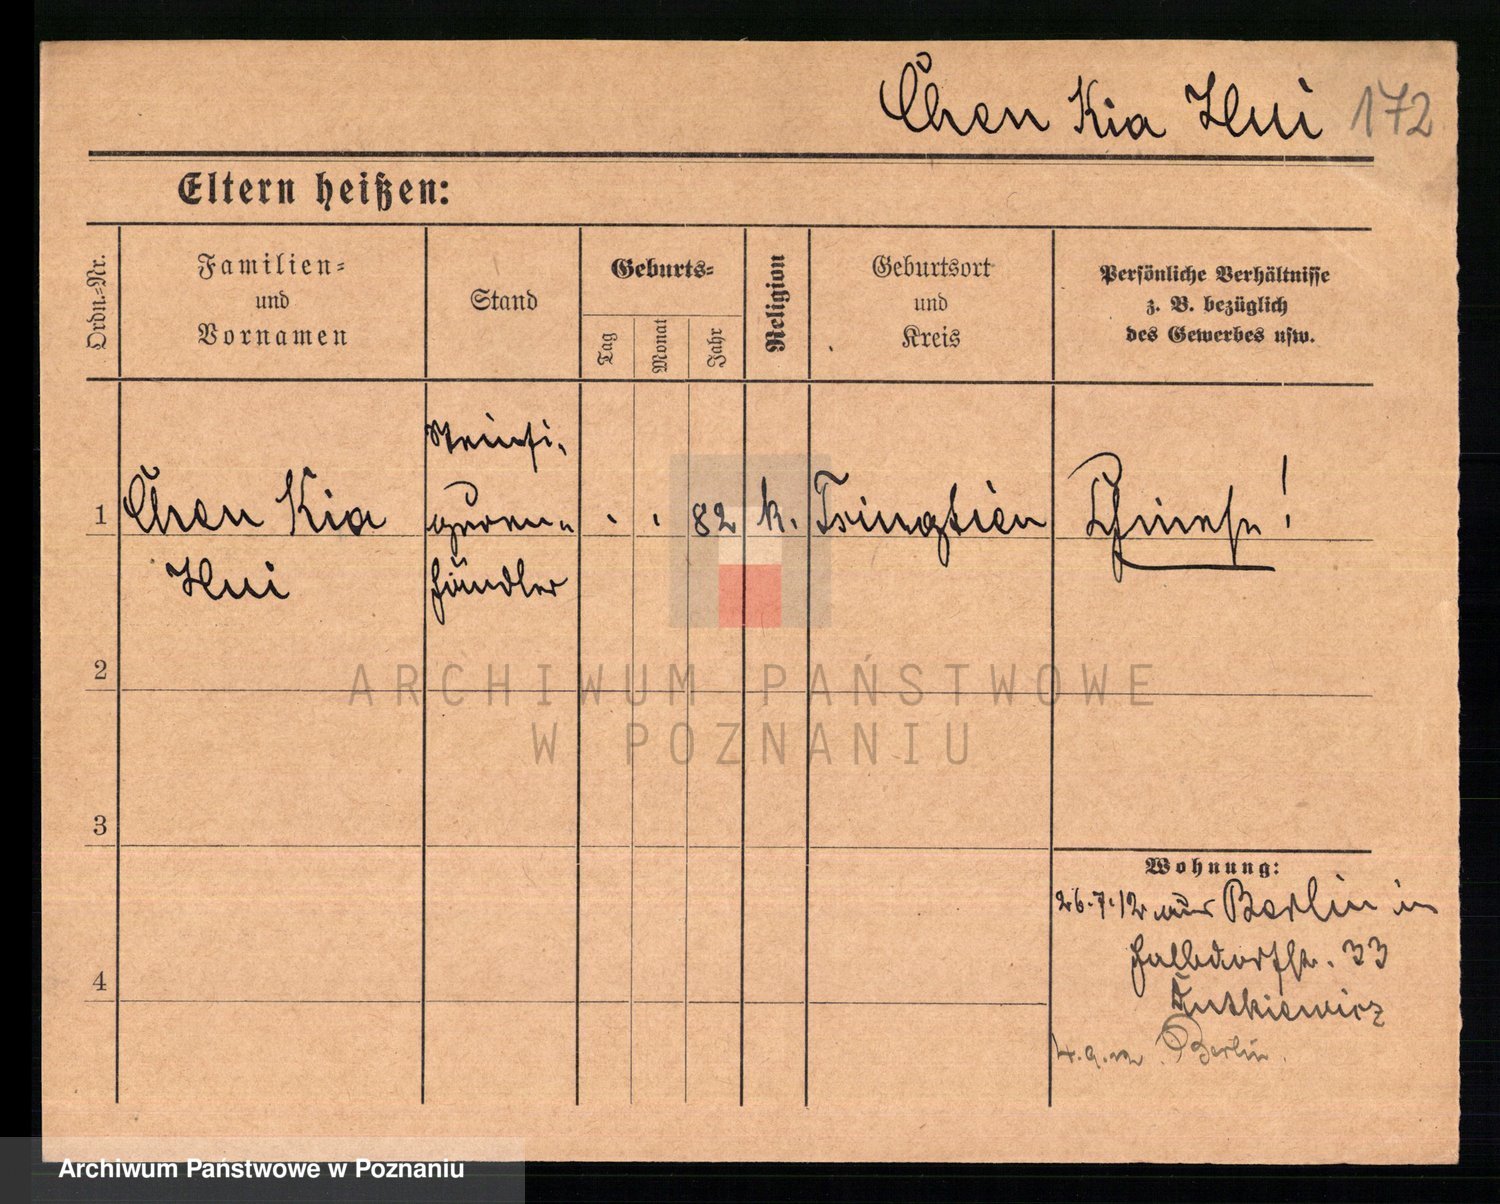 Chen Kia Hui 172
Eltern heißen:
Ordn.=Nr.
Familien=
und
Vornamen
Stand
Geburts=
Tag
Monat
Jahr
Religion
Geburtsort
und
Kreis
Persönliche Verhältnisse
z. B. bezüglich
des Gewerbes usw.
1 Chen Kia
Hui
Steinfi-
guren-
händler
. . 82 k. Tsingtien Chinese!
2
3
4
Wohnung:
26.7.12 aus Berlin in
Halbdorfstr. 33
4.9.12 Berlin.
ARCHIWUM PAŃSTWOWE
W POZNANIU
Archiwum Państwowe w Poznaniu